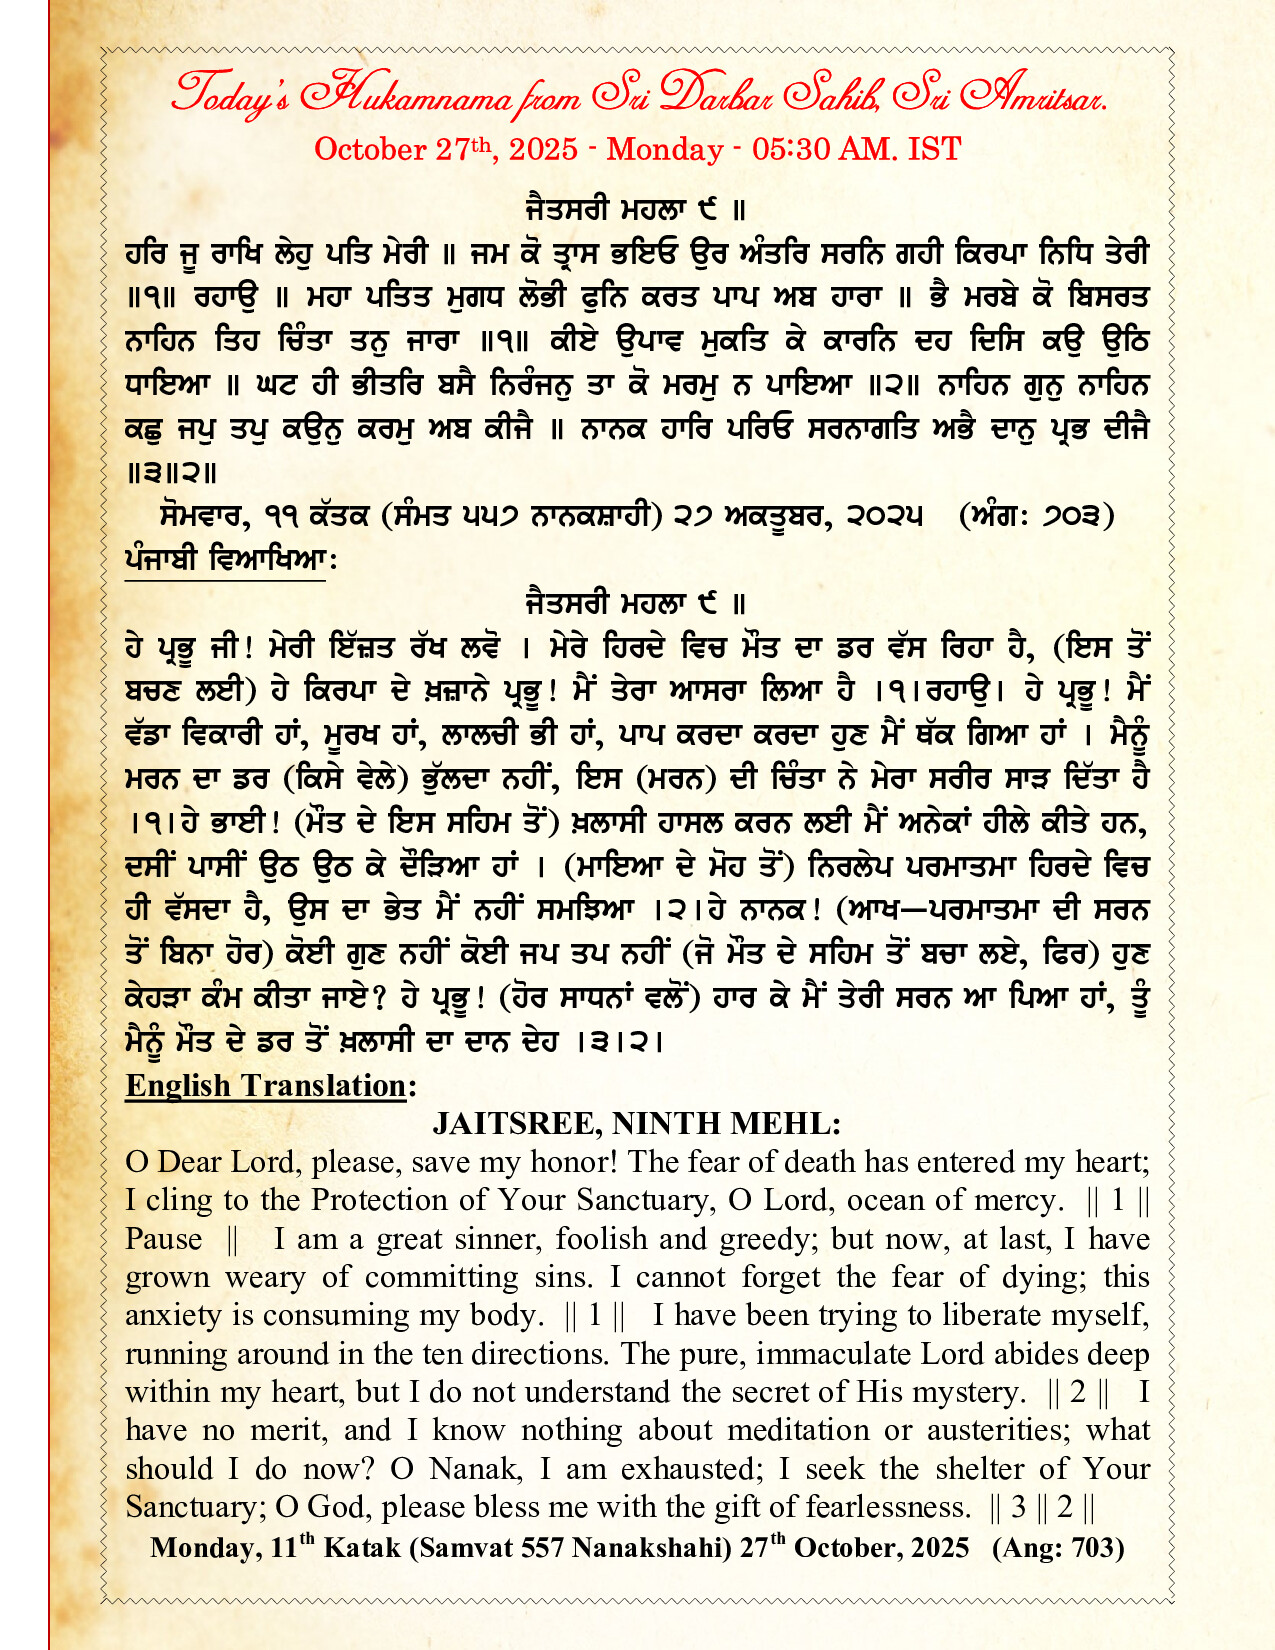 Today's Hukamnama from Sri Darbar Sahib, Sri Amritsar.
October 27th, 2025 - Monday - 05:30 AM. IST
ਜੈਤਸਰੀ ਮਹਲਾ ੯ ॥
ਹਰਿ ਜੂ ਰਾਖਿ ਲੇਹੁ ਪਤਿ ਮੇਰੀ ॥ ਜਮ ਕੋ ਤ੍ਰਾਸ ਭਇਓ ਉਰ ਅੰਤਰਿ ਸਰਨਿ ਗਹੀ ਕਿਰਪਾ ਨਿਧਿ ਤੇਰੀ
॥੧॥ ਰਹਾਉ ॥ ਮਹਾ ਪਤਿਤ ਮੁਗਧ ਲੋਭੀ ਫੁਨਿ ਕਰਤ ਪਾਪ ਅਬ ਹਾਰਾ ॥ ਭੈ ਮਰਬੇ ਕੋ ਬਿਸਰਤ
ਨਾਹਿਨ ਤਿਹ ਚਿੰਤਾ ਤਨੁ ਜਾਰਾ ॥੧॥ ਕੀਏ ਉਪਾਵ ਮੁਕਤਿ ਕੇ ਕਾਰਨਿ ਦਹ ਦਿਸਿ ਕਉ ਉਠਿ
ਧਾਇਆ ॥ ਘਟ ਹੀ ਭੀਤਰਿ ਬਸੈ ਨਿਰੰਜਨੁ ਤਾ ਕੋ ਮਰਮੁ ਨ ਪਾਇਆ ॥੨॥ ਨਾਹਿਨ ਗੁਨੁ ਨਾਹਿਨ
ਕਛੁ ਜਪੁ ਤਪੁ ਕਉਨੁ ਕਰਮੁ ਅਬ ਕੀਜੈ ॥ ਨਾਨਕ ਹਾਰਿ ਪਰਿਓ ਸਰਨਾਗਤਿ ਅਭੈ ਦਾਨੁ ਪ੍ਰਭ ਦੀਜੈ
॥੩॥੨॥
ਸੋਮਵਾਰ, ੧੧ ਕੱਤਕ (ਸੰਮਤ ੫੫੭ ਨਾਨਕਸ਼ਾਹੀ) ੨੭ ਅਕਤੂਬਰ, ੨੦੨੫ (ਅੰਗ: ੭੦੩)
ਪੰਜਾਬੀ ਵਿਆਖਿਆ:
ਜੈਤਸਰੀ ਮਹਲਾ ੯ ॥
ਹੇ ਪ੍ਰਭੂ ਜੀ! ਮੇਰੀ ਇੱਜ਼ਤ ਰੱਖ ਲਵੋ । ਮੇਰੇ ਹਿਰਦੇ ਵਿਚ ਮੌਤ ਦਾ ਡਰ ਵੱਸ ਰਿਹਾ ਹੈ, (ਇਸ ਤੋਂ
ਬਚਣ ਲਈ) ਹੇ ਕਿਰਪਾ ਦੇ ਖ਼ਜ਼ਾਨੇ ਪ੍ਰਭੂ! ਮੈਂ ਤੇਰਾ ਆਸਰਾ ਲਿਆ ਹੈ ।੧।ਰਹਾਉ। ਹੇ ਪ੍ਰਭੂ! ਮੈਂ
ਵੱਡਾ ਵਿਕਾਰੀ ਹਾਂ, ਮੂਰਖ ਹਾਂ, ਲਾਲਚੀ ਭੀ ਹਾਂ, ਪਾਪ ਕਰਦਾ ਕਰਦਾ ਹੁਣ ਮੈਂ ਥੱਕ ਗਿਆ ਹਾਂ । ਮੈਨੂੰ
ਮਰਨ ਦਾ ਡਰ (ਕਿਸੇ ਵੇਲੇ) ਭੁੱਲਦਾ ਨਹੀਂ, ਇਸ (ਮਰਨ) ਦੀ ਚਿੰਤਾ ਨੇ ਮੇਰਾ ਸਰੀਰ ਸਾੜ ਦਿੱਤਾ ਹੈ
।੧।ਹੇ ਭਾਈ! (ਮੌਤ ਦੇ ਇਸ ਸਹਿਮ ਤੋਂ) ਖ਼ਲਾਸੀ ਹਾਸਲ ਕਰਨ ਲਈ ਮੈਂ ਅਨੇਕਾਂ ਹੀਲੇ ਕੀਤੇ ਹਨ,
ਦਸੀਂ ਪਾਸੀਂ ਉਠ ਉਠ ਕੇ ਦੌੜਿਆ ਹਾਂ । (ਮਾਇਆ ਦੇ ਮੋਹ ਤੋਂ) ਨਿਰਲੇਪ ਪਰਮਾਤਮਾ ਹਿਰਦੇ ਵਿਚ
ਹੀ ਵੱਸਦਾ ਹੈ, ਉਸ ਦਾ ਭੇਤ ਮੈਂ ਨਹੀਂ ਸਮਝਿਆ ।੨।ਹੇ ਨਾਨਕ! (ਆਖ—ਪਰਮਾਤਮਾ ਦੀ ਸਰਨ
ਤੋਂ ਬਿਨਾ ਹੋਰ) ਕੋਈ ਗੁਣ ਨਹੀਂ ਕੋਈ ਜਪ ਤਪ ਨਹੀਂ (ਜੋ ਮੌਤ ਦੇ ਸਹਿਮ ਤੋਂ ਬਚਾ ਲਏ, ਫਿਰ) ਹੁਣ
ਕੇਹੜਾ ਕੰਮ ਕੀਤਾ ਜਾਏ? ਹੇ ਪ੍ਰਭੂ! (ਹੋਰ ਸਾਧਨਾਂ ਵਲੋਂ) ਹਾਰ ਕੇ ਮੈਂ ਤੇਰੀ ਸਰਨ ਆ ਪਿਆ ਹਾਂ, ਤੂੰ
ਮੈਨੂੰ ਮੌਤ ਦੇ ਡਰ ਤੋਂ ਖ਼ਲਾਸੀ ਦਾ ਦਾਨ ਦੇਹ ।੩।੨।
English Translation:
JAITSREE, NINTH MEHL:
O Dear Lord, please, save my honor! The fear of death has entered my heart;
I cling to the Protection of Your Sanctuary, O Lord, ocean of mercy. || 1 ||
Pause || I am a great sinner, foolish and greedy; but now, at last, I have
grown weary of committing sins. I cannot forget the fear of dying; this
anxiety is consuming my body. || 1 || I have been trying to liberate myself,
running around in the ten directions. The pure, immaculate Lord abides deep
within my heart, but I do not understand the secret of His mystery. || 2 || I
have no merit, and I know nothing about meditation or austerities; what
should I do now? O Nanak, I am exhausted; I seek the shelter of Your
Sanctuary; O God, please bless me with the gift of fearlessness. || 3 || 2 ||
Monday, 11th Katak (Samvat 557 Nanakshahi) 27th October, 2025 (Ang: 703)